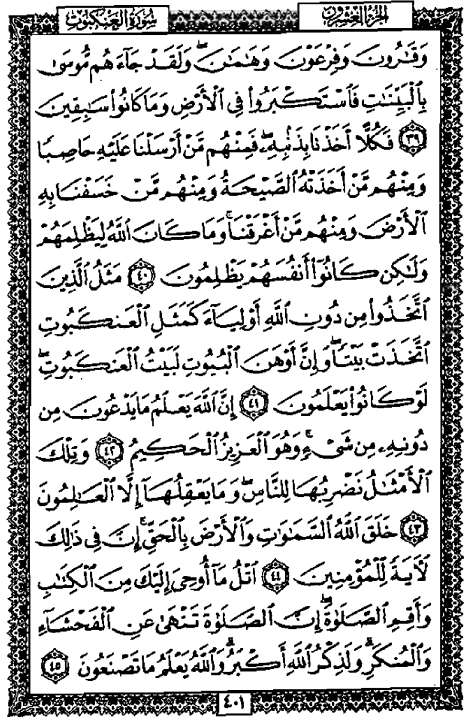 سُورَةُ العَنكَبُوت
الجُزْءُ العِشْرُونَ
وَقَٰرُونَ وَفِرْعَوْنَ وَهَٰمَٰنَۖ وَلَقَدْ جَآءَهُم مُّوسَىٰ
بِٱلْبَيِّنَٰتِ فَٱسْتَكْبَرُوا۟ فِى ٱلْأَرْضِ وَمَا كَانُوا۟ سَٰبِقِينَ
٣٩ فَكُلًّا أَخَذْنَا بِذَنۢبِهِۦۖ فَمِنْهُم مَّنْ أَرْسَلْنَا عَلَيْهِ حَاصِبًا
وَمِنْهُم مَّنْ أَخَذَتْهُ ٱلصَّيْحَةُ وَمِنْهُم مَّنْ خَسَفْنَا بِهِ
ٱلْأَرْضَ وَمِنْهُم مَّنْ أَغْرَقْنَاۚ وَمَا كَانَ ٱللَّهُ لِيَظْلِمَهُمْ
وَلَٰكِن كَانُوٓا۟ أَنفُسَهُمْ يَظْلِمُونَ ٤٠ مَثَلُ ٱلَّذِينَ
ٱتَّخَذُوا۟ مِن دُونِ ٱللَّهِ أَوْلِيَآءَ كَمَثَلِ ٱلْعَنكَبُوتِ
ٱتَّخَذَتْ بَيْتًاۖ وَإِنَّ أَوْهَنَ ٱلْبُيُوتِ لَبَيْتُ ٱلْعَنكَبُوتِۖ
لَوْ كَانُوا۟ يَعْلَمُونَ ٤١ إِنَّ ٱللَّهَ يَعْلَمُ مَا يَدْعُونَ مِن
دُونِهِۦ مِن شَىْءٍۚ وَهُوَ ٱلْعَزِيزُ ٱلْحَكِيمُ ٤٢ وَتِلْكَ
ٱلْأَمْثَٰلُ نَضْرِبُهَا لِلنَّاسِۖ وَمَا يَعْقِلُهَآ إِلَّا ٱلْعَٰلِمُونَ
٤٣ خَلَقَ ٱللَّهُ ٱلسَّمَٰوَٰتِ وَٱلْأَرْضَ بِٱلْحَقِّۚ إِنَّ فِى ذَٰلِكَ
لَءَايَةً لِّلْمُؤْمِنِينَ ٤٤ ٱتْلُ مَآ أُوحِىَ إِلَيْكَ مِنَ ٱلْكِتَٰبِ
وَأَقِمِ ٱلصَّلَوٰةَۖ إِنَّ ٱلصَّلَوٰةَ تَنْهَىٰ عَنِ ٱلْفَحْشَآءِ
وَٱلْمُنكَرِۗ وَلَذِكْرُ ٱللَّهِ أَكْبَرُۗ وَٱللَّهُ يَعْلَمُ مَا تَصْنَعُونَ ٤٥
٤٠١